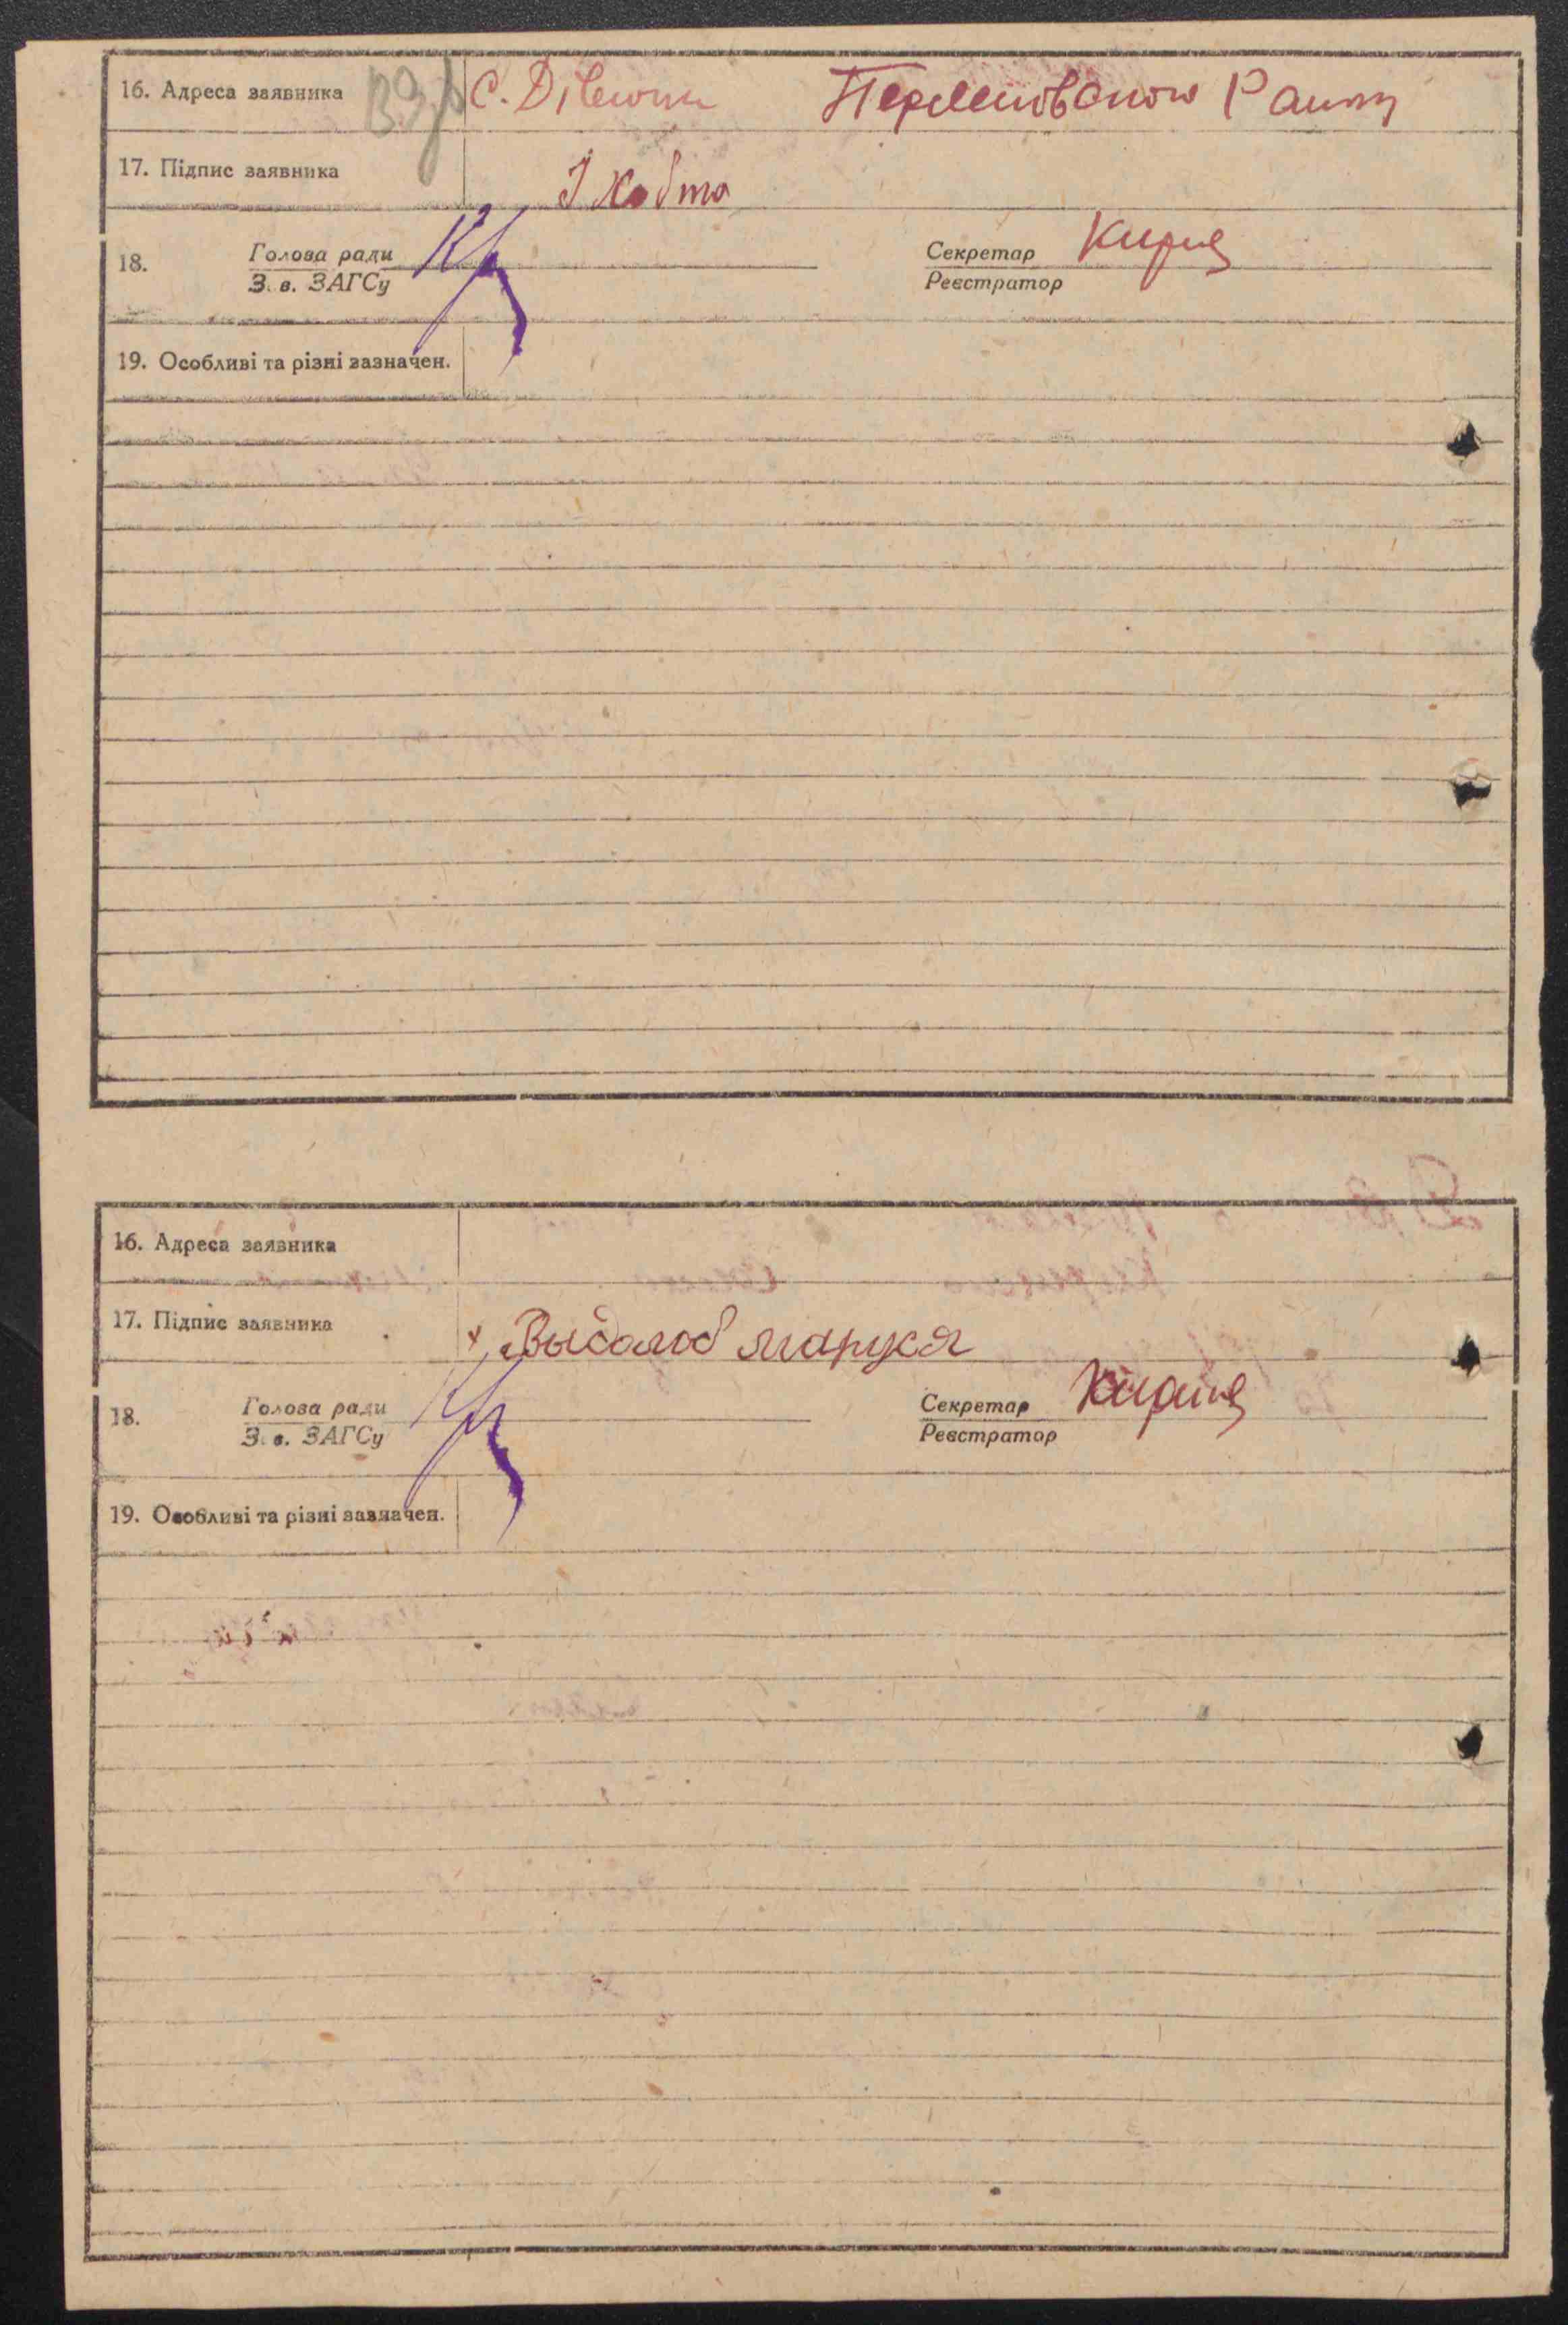 16. Адреса заявника С. Дівички Переяславського Району
17. Підпис заявника
18. Голова ради Секретар
З. в. ЗАГСу Реєстратор
19. Особливі та різні зазначен.
16. Адреса заявника
17. Підпис заявника маруся
18. Голова ради Секретар
З. в. ЗАГСу Реєстратор
19. Особливі та різні зазначен.